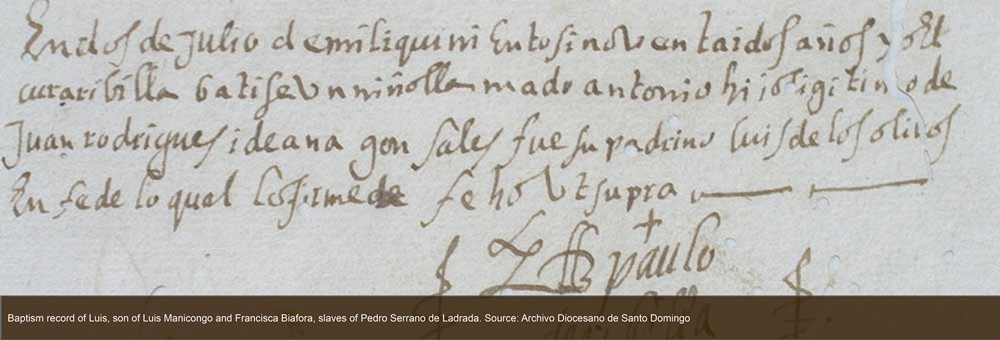 En dos de Julio de mil i quini entos i noventa i dos años yo El
cura ribilla batise Un niño llamado antonio hijo ligitimo de
Juan rodrigues i de ana gonsales fue su padrino luis de los olivos
En fe de lo qual lo firme fe ho Ut supra
paulo
Baptism record of Luis, son of Luis Manicongo and Francisca Biafora, slaves of Pedro Serrano de Ladrada. Source: Archivo Diocesano de Santo Domingo